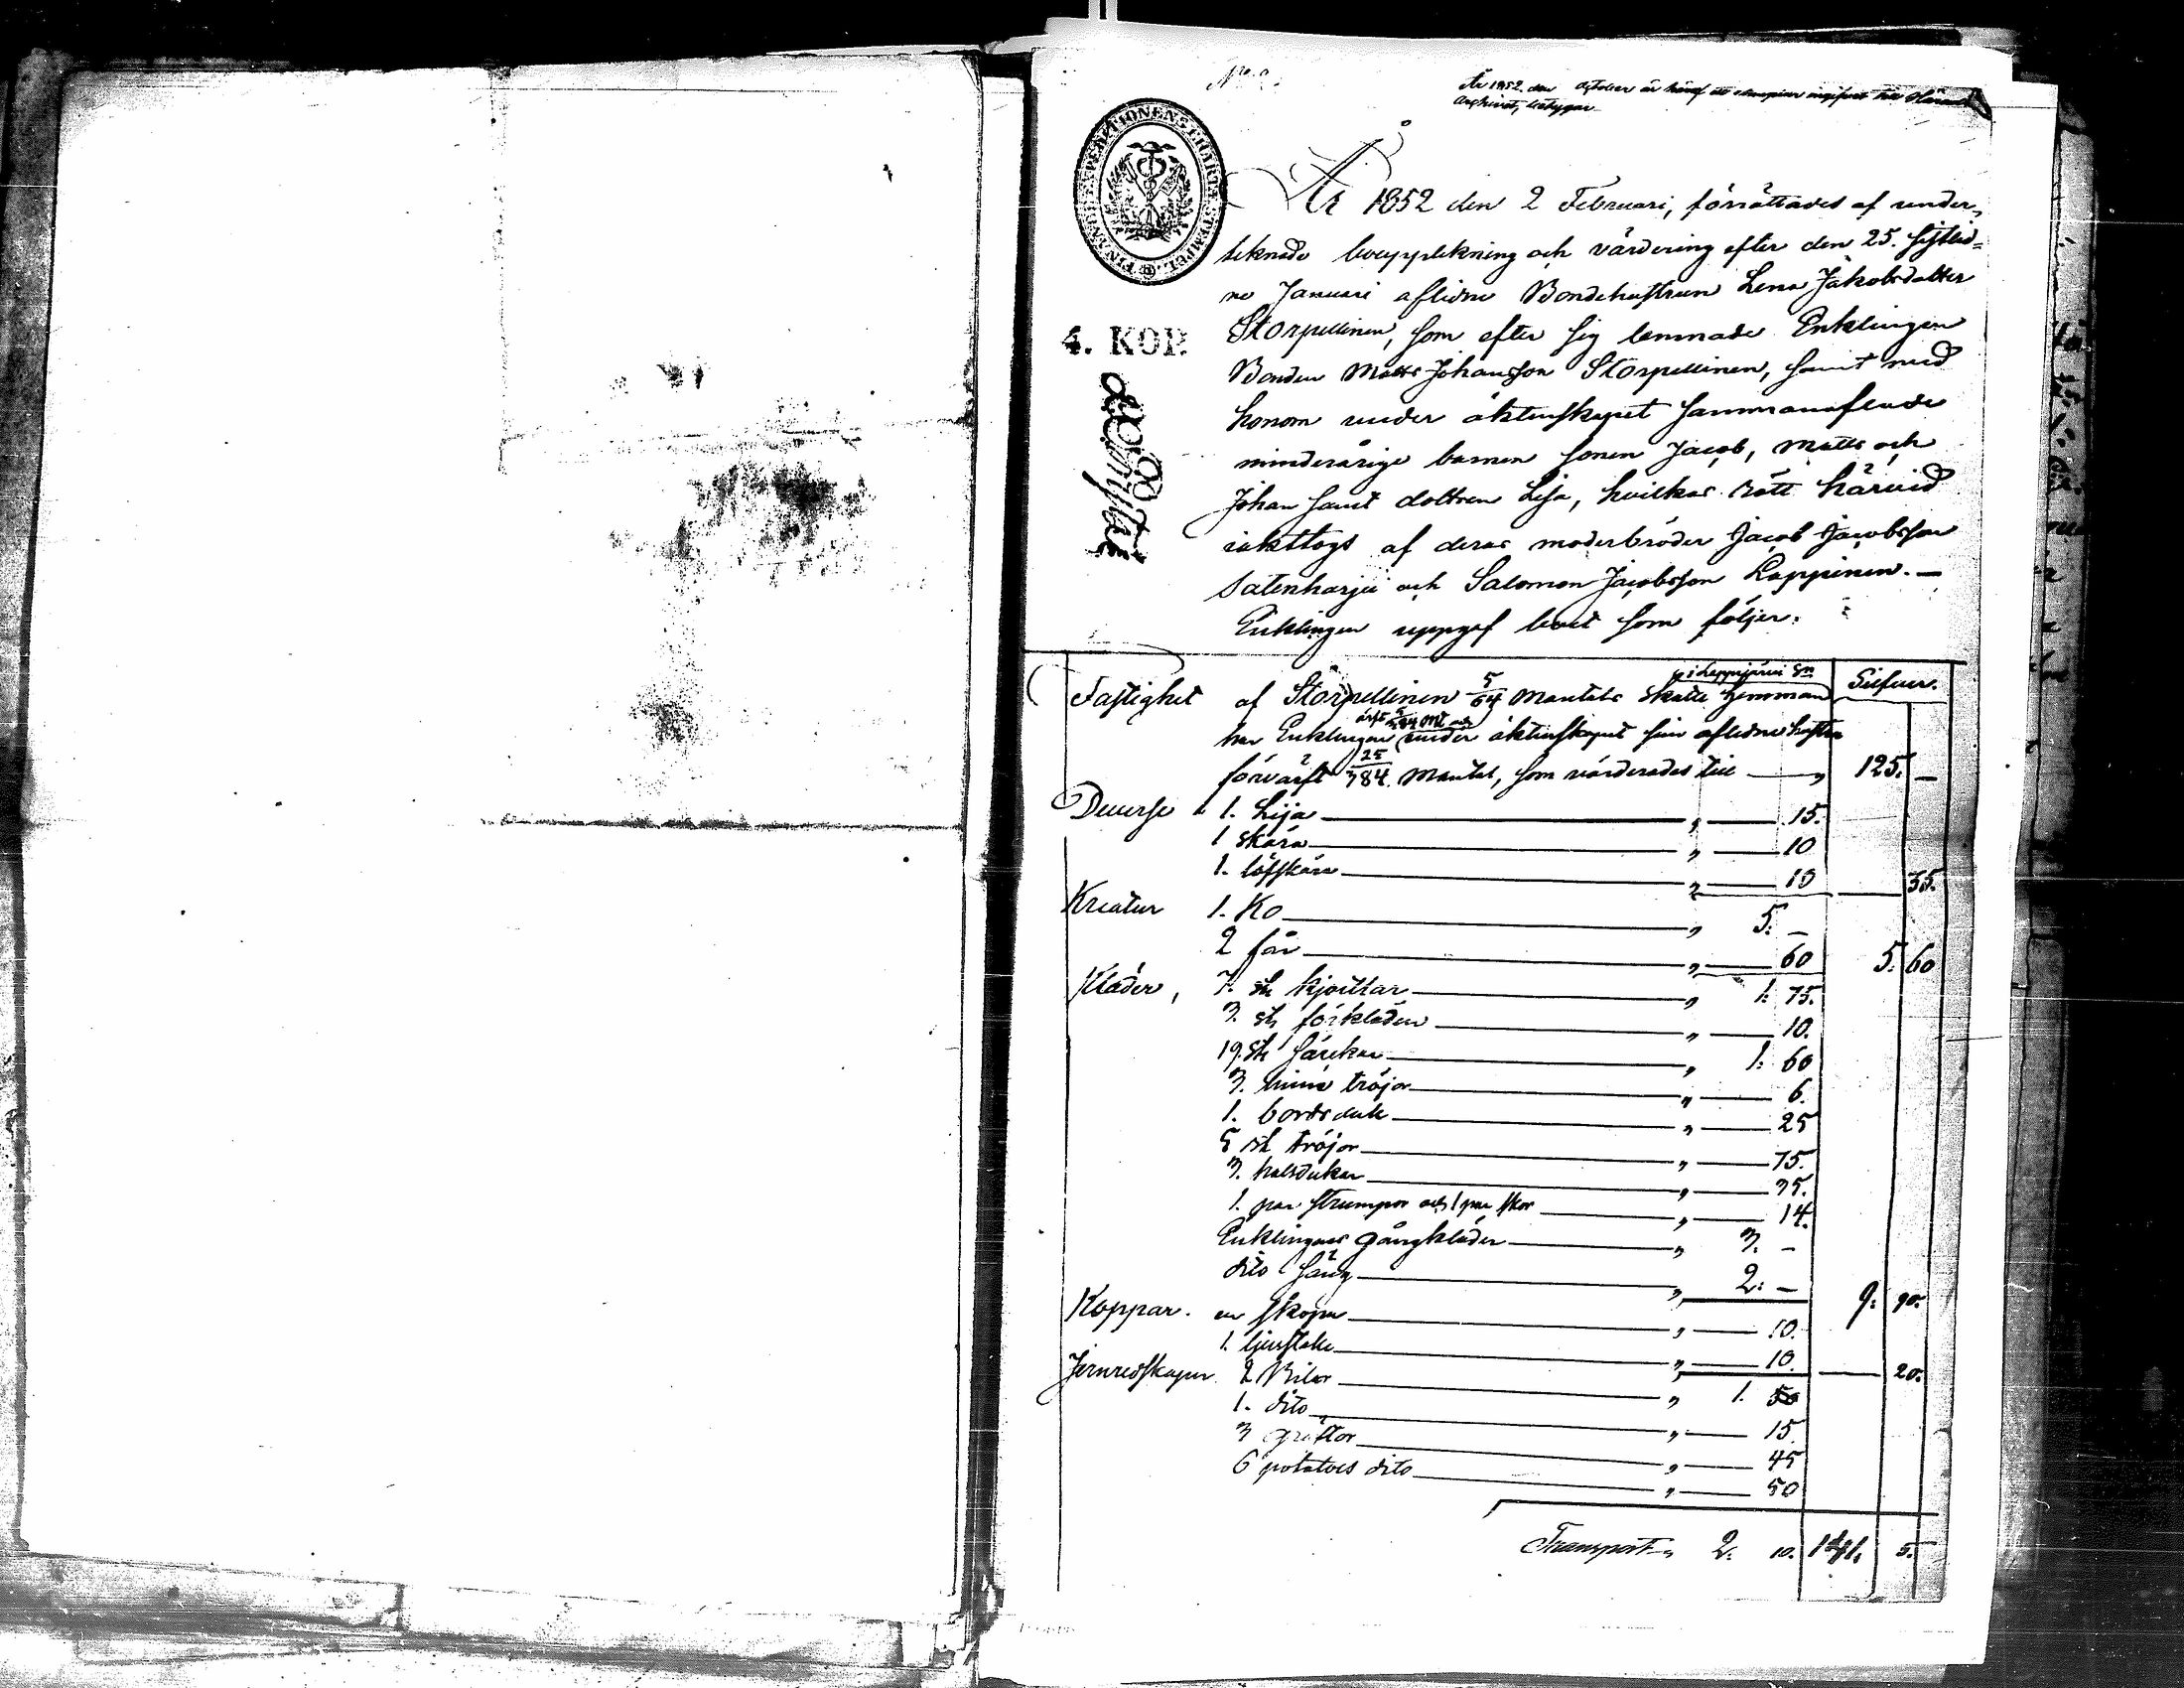 År 1852 den October är häraf ett exemplar ingifvet till Härads
Archivet, betygar
FINANCE EXPEDITIONENS CHARTÆ STEMPEL
År 1852 den 2 Februari, förrättades af under,,
teknade bouppteкning och värdering efter den 25. sistlid=
ne Januari aflidne Bondehustrun Lena Jakobsdotter
4. KOP. Storpellinen, som efter sig lemnade Enklingen
Bonden Matts Johansson Storpellinen, samt med
honom under äktenskapet sammanaflade
minderårige barnen sonen Jacob, Matts och
Johan samt dottren Lisa, hvilkas rätt härvid
iakttogs af deras moderbröder Jacob Jacobsson
Satenharju och Salomon Jacobsson Lappinen. —
Enklingen uppgaf boet som följer.
i Leppejärvi Sn Silfver.
Fastighet af Storpellinen 5/64 Mantals Skatte hemman
har Enklingen under äktenskapet sin aflidne hustru
förvärft 25/384 Mantal, som värderades till — „ 125. —
Diverse 1. Lija — „ — 15.
1 skära — „ — 10
1. löfskära — „ — 10 — 35.
Kreatur 1. Ko — „ 5. —
2 får — „ — 60 5. 60
Kläder, 7. st kjortlar — „ 1. 75.
3. st förkläden — „ — 10.
19. st särckar — „ 1. 60
3. tröjor — „ — 6.
1. bordsduk — „ — 25
5 st tröjor — „ — 75.
3. halsdukar — „ — 35.
1. par strumpor och 1 par skor — „ — 14.
Enklingens gångkläder — „ 3. —
dito säng — „ 2: — 9. 90.
Koppar. en skopa — „ — 10.
1. ljusstake — „ — 10. — 20.
Jernredskaper 2 Bilor — „ 1. 50
1. dito — „ — 15.
3 gräftor — „ — 45
6 potatoes dito — „ — 50
Transport „ 2. 10. 141. 5.